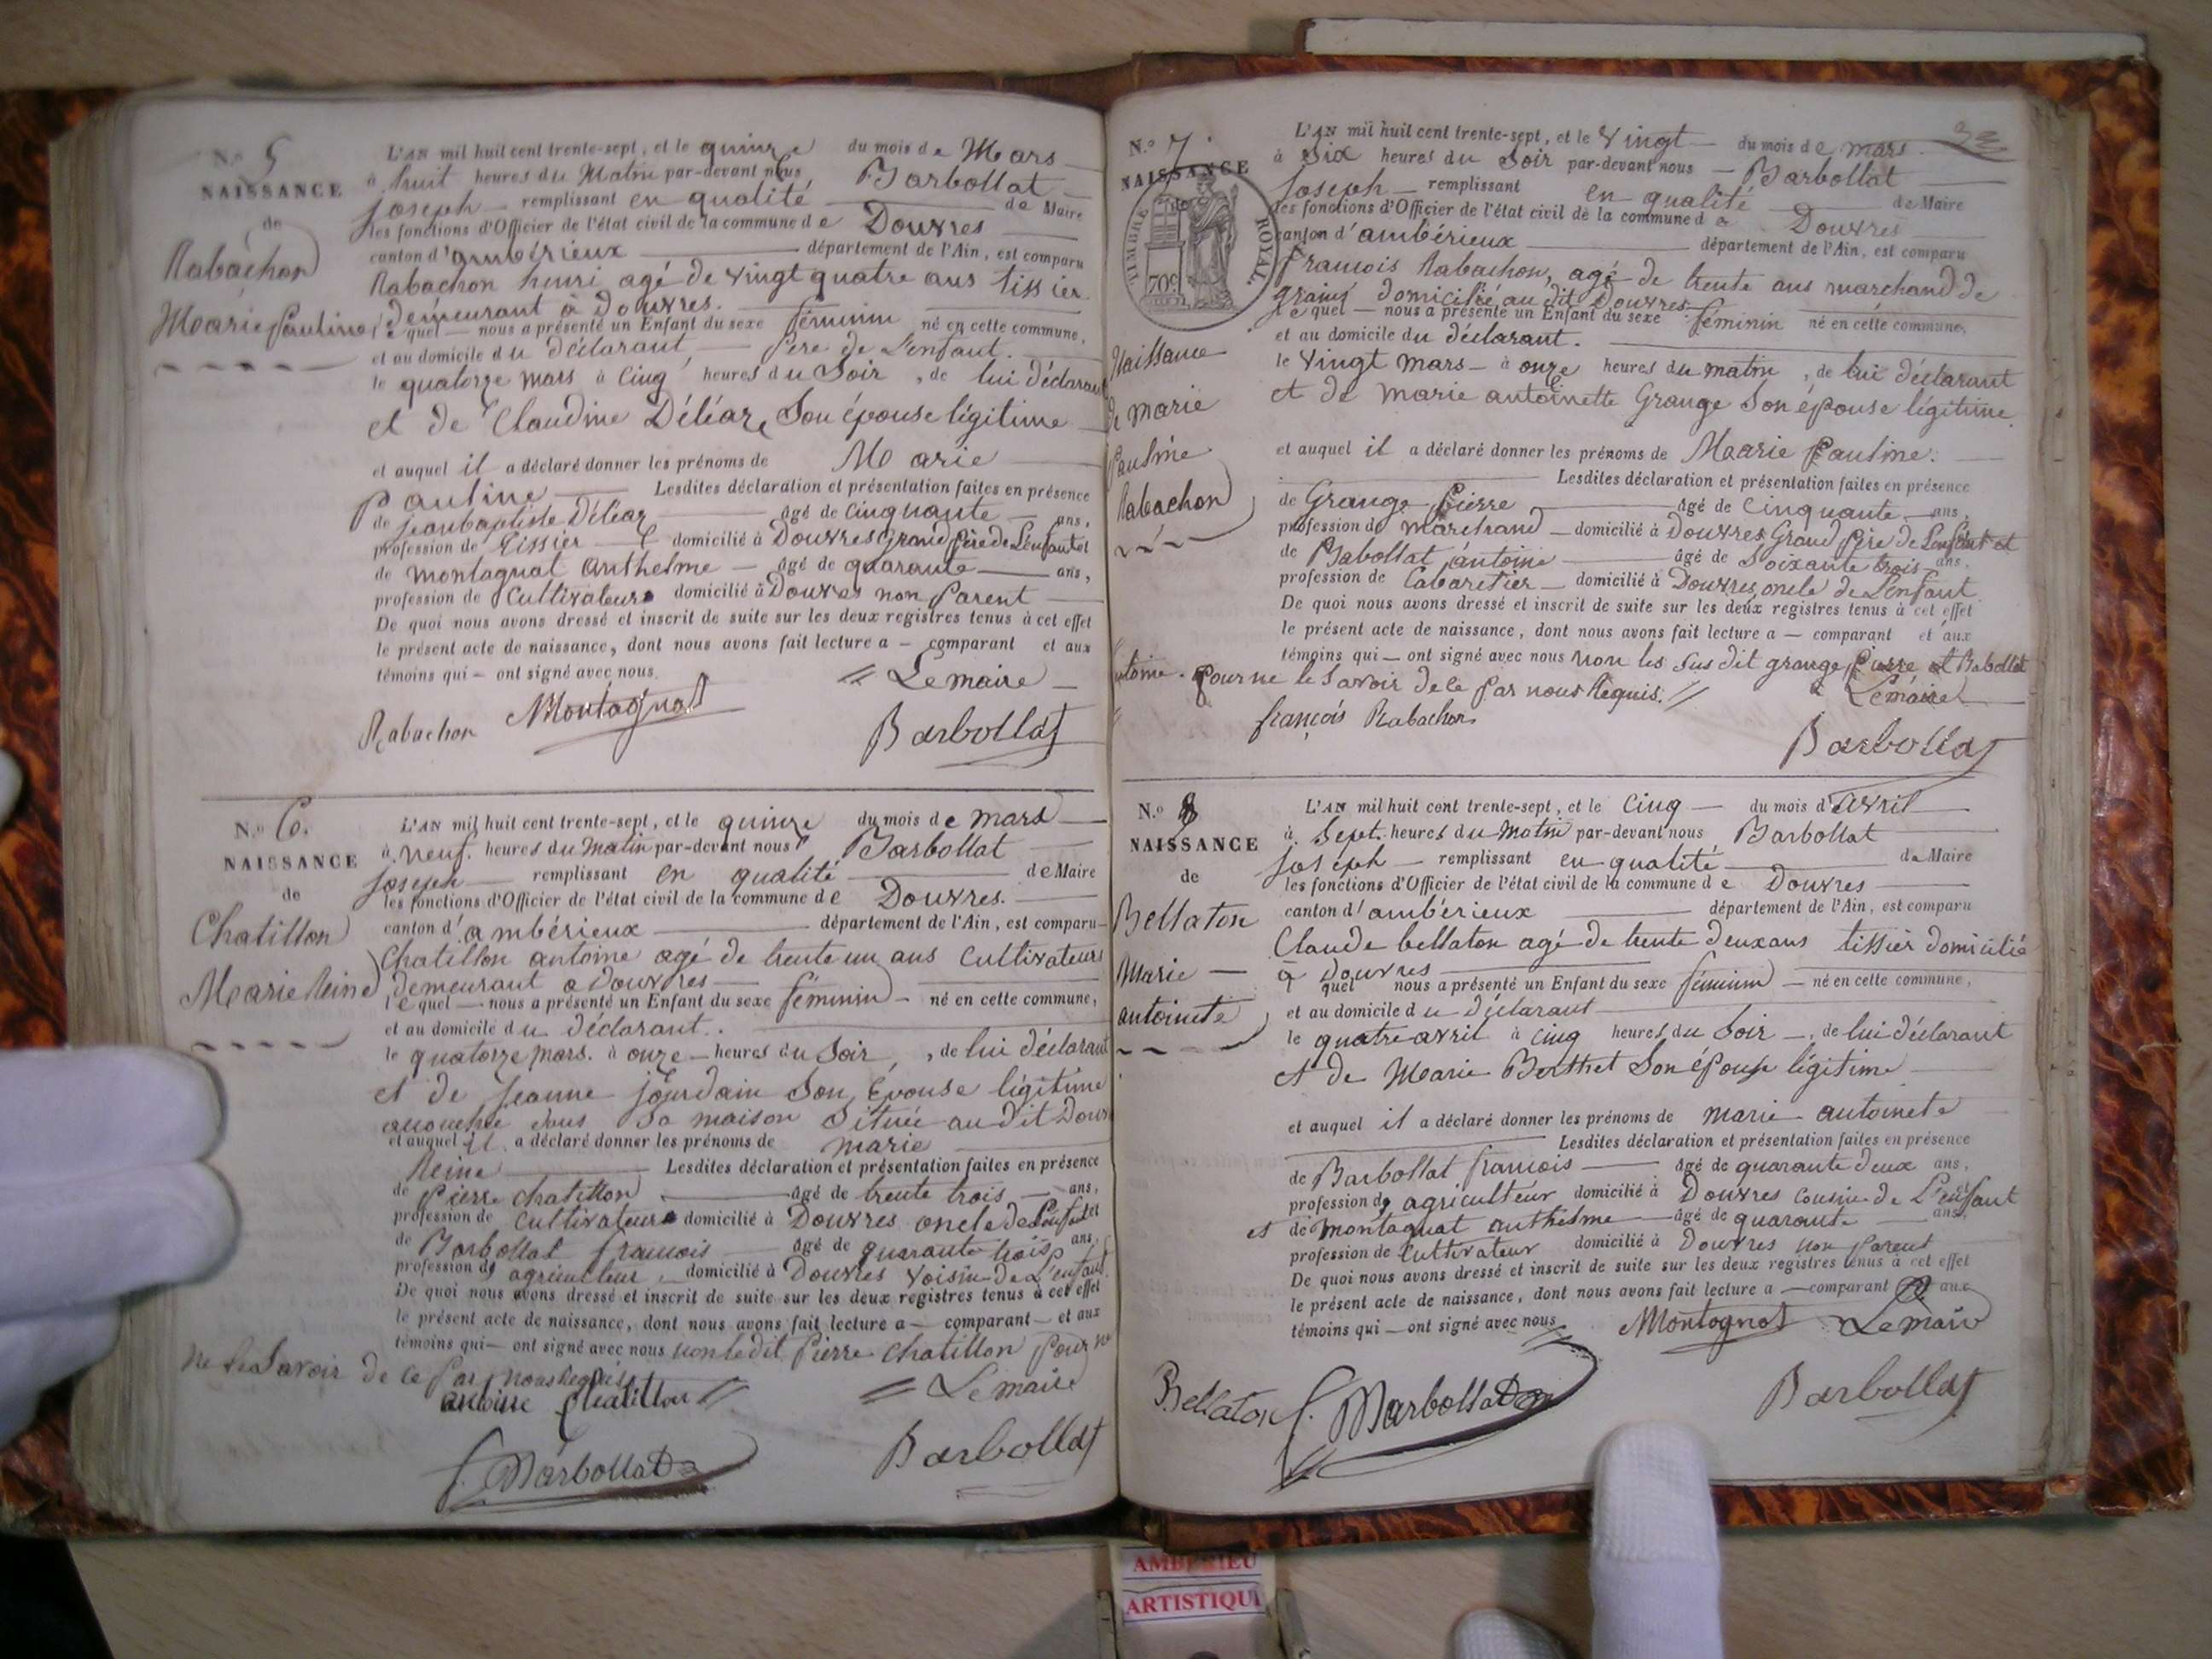 N.º 5
NAISSANCE
de
Rabachon
Marie Pauline
L'AN mil huit cent trente-sept, et le quinze du mois de Mars
à huit heures du Matin par-devant nous Barbollat
Joseph remplissant en qualité de Maire
les fonctions d'Officier de l'état civil de la commune de Douvres
canton d'ambérieux département de l'Ain, est comparu
Rabachon henri agé de vingt quatre ans tissier
demeurant à Douvres.
lequel nous a présenté un Enfant du sexe féminin né en cette commune,
et au domicile du déclarant Père de L'enfant.
le quatorze mars à cinq heures du Soir, de lui déclarant
et de Claudine Déléaz Son épouse légitime
et auquel il a déclaré donner les prénoms de Marie
Pauline Lesdites déclaration et présentation faites en présence
de jeanbaptiste Déléaz âgé de cinquante ans,
profession de Tissier domicilié à Douvres Grand Père de L'enfant et
de montagnat anthelme âgé de quarante ans,
profession de Cultivateur domicilié à Douvres non Parent
De quoi nous avons dressé et inscrit de suite sur les deux registres tenus à cet effet
le présent acte de naissance, dont nous avons fait lecture a comparant et aux
témoins qui ont signé avec nous
Le maire
Rabachon Montagnat Barbollat
N.º 6.
NAISSANCE
de
Chatillon
Marie Reine
L'AN mil huit cent trente-sept, et le quinze du mois de mars
à neuf heures du Matin par-devant nous Barbollat
Joseph remplissant en qualité de Maire
les fonctions d'Officier de l'état civil de la commune de Douvres.
canton d'ambérieux département de l'Ain, est comparu
Chatillon antoine agé de trente un ans Cultivateur
demeurant a Douvres
lequel nous a présenté un Enfant du sexe féminin né en cette commune,
et au domicile du déclarant.
le quatorze mars. à onze heures du Soir, de lui déclarant
et de Jeanne jourdain Son Epouse légitime
accouchée dans Sa maison Située au dit Douv
et auquel il a déclaré donner les prénoms de marie
Reine Lesdites déclaration et présentation faites en présence
de Pierre chatillon âgé de trente trois ans,
profession de Cultivateur domicilié à Douvres oncle de L'enfant et
de Barbollat francois âgé de quarante trois ans,
profession de agriculteur domicilié à Douvres voisin de L'enfant
De quoi nous avons dressé et inscrit de suite sur les deux registres tenus à cet effet
le présent acte de naissance, dont nous avons fait lecture a comparant et aux
témoins qui ont signé avec nous non le dit Pierre chatillon Pour ne
ne Le Savoir de ce Par nous Requis
antoine Chatillon Le maire
f. Barbollat Barbollat
32
N.º 7.
NAISSANCE
de
TIMBRE ROYAL
70c
Naissance
de marie
Pauline
Rabachon
L'AN mil huit cent trente-sept, et le vingt du mois de mars
à Six heures du Soir par-devant nous Barbollat
Joseph remplissant en qualité de Maire
les fonctions d'Officier de l'état civil de la commune de Douvres
canton d'ambérieux département de l'Ain, est comparu
francois Rabachon, agé de trente ans marchand de
grains domicilié au dit Douvres
lequel nous a présenté un Enfant du sexe féminin né en cette commune,
et au domicile du déclarant.
le vingt mars à onze heures du matin, de lui déclarant
et de marie antoinette Grange Son épouse légitime
et auquel il a déclaré donner les prénoms de Marie Pauline.
Lesdites déclaration et présentation faites en présence
de Grange Pierre âgé de Cinquante ans,
profession de marchand domicilié à Douvres Grand Père de L'enfant et
de Babollat antoine âgé de Soixante trois ans,
profession de Cabaretier domicilié à Douvres oncle de L'enfant
De quoi nous avons dressé et inscrit de suite sur les deux registres tenus à cet effet
le présent acte de naissance, dont nous avons fait lecture a comparant et aux
témoins qui ont signé avec nous non les Sus dit grange Pierre et Babollat
antoine. Pour ne le Savoir de ce Par nous Requis.
Le maire
françois Rabachon
Barbollat
N.º 8
NAISSANCE
de
Bellaton
Marie
antoinete
L'AN mil huit cent trente-sept, et le cinq du mois d'avril
à Sept heures du Matin par-devant nous Barbollat
Joseph remplissant en qualité de Maire
les fonctions d'Officier de l'état civil de la commune de Douvres
canton d'ambérieux département de l'Ain, est comparu
Claude bellaton agé de trente deux ans tissier domicilié
à Douvres
quel nous a présenté un Enfant du sexe féminin né en cette commune,
et au domicile du déclarant
le quatre avril à cinq heures du Soir, de lui déclarant
et de Marie Berthet Son épouse légitime
et auquel il a déclaré donner les prénoms de marie antoinete
Lesdites déclaration et présentation faites en présence
de Barbollat francois âgé de quarante deux ans,
profession de agriculteur domicilié à Douvres cousin de L'enfant
et de montagnat anthelme âgé de quarante ans,
profession de Cultivateur domicilié à Douvres non Parent
De quoi nous avons dressé et inscrit de suite sur les deux registres tenus à cet effet
le présent acte de naissance, dont nous avons fait lecture a comparant et aux
témoins qui ont signé avec nous Montagnat Le maire
Bellaton f. Barbollat Barbollat
AMBERIEU
ARTISTIQUE